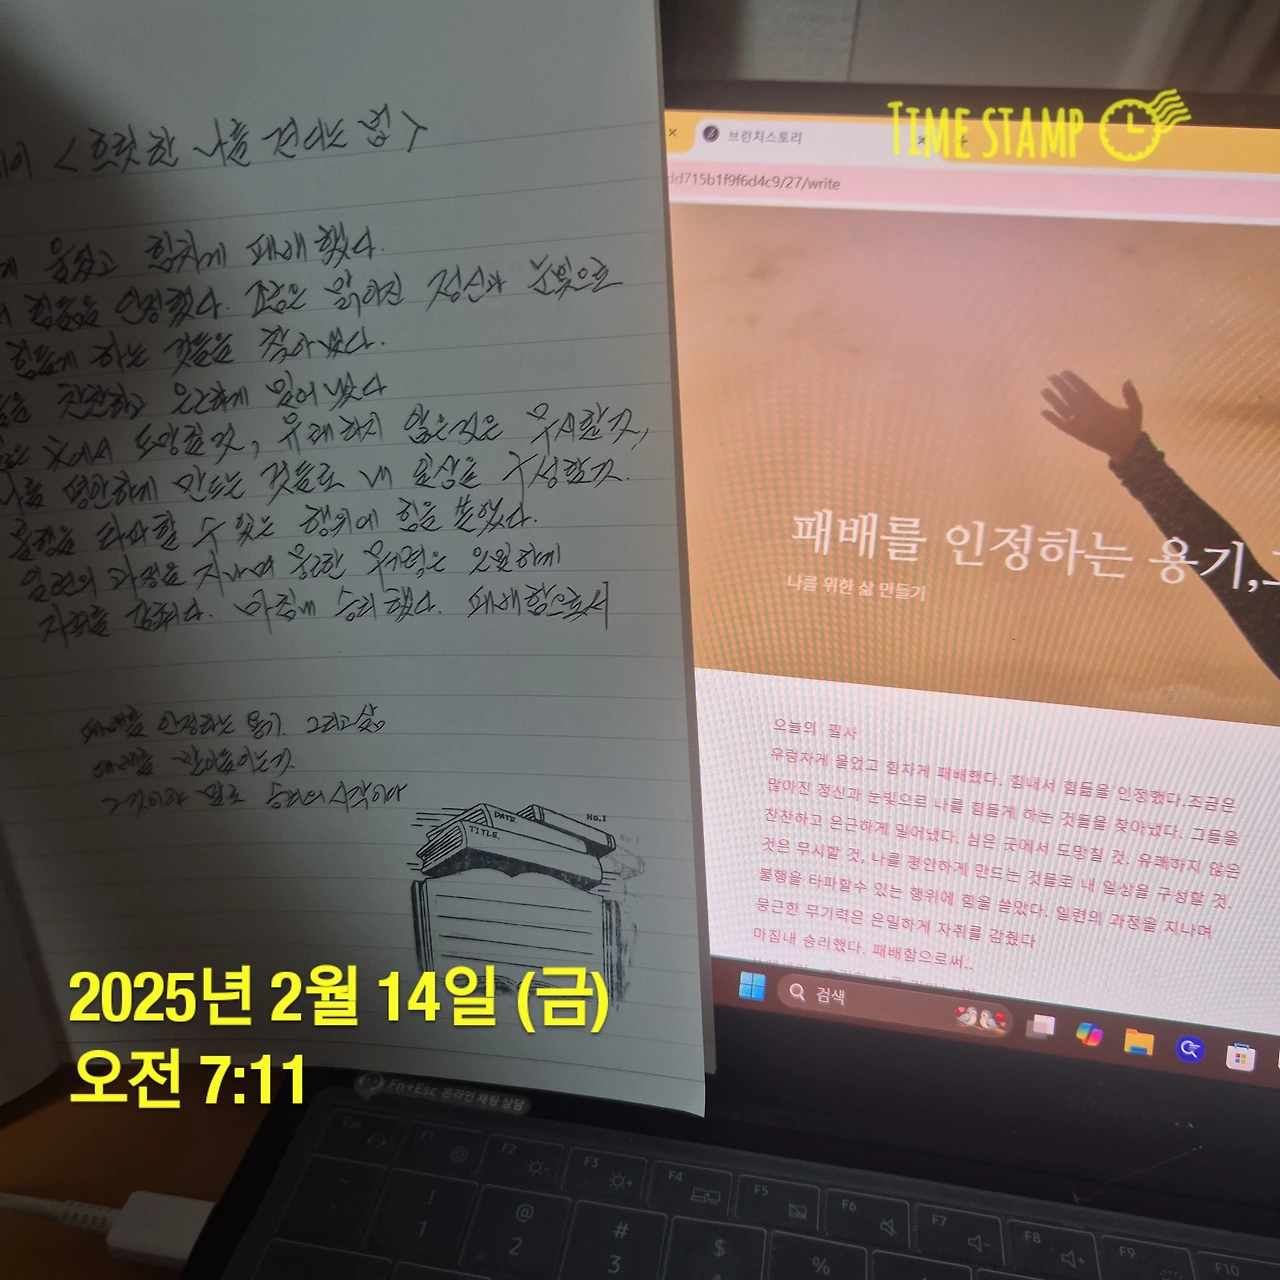 <흐릿한 나를 견디는 법>
울었고 힘차게 패배했다.
힘듦을 인정했다. 조금은 맑아진 정신과 눈빛으로
힘들게 하는 것들을 찾아냈다.
찬찬하고 은근하게 밀어냈다
곳에서 도망칠 것, 유쾌하지 않은것은 무시할 것,
나를 평안하게 만드는 것들로 내 일상을 구성할 것.
불행을 타파할 수 있는 행위에 힘을 쏟았다.
일련의 과정을 지나며 뭉근한 무기력은 은밀하게
자취를 감췄다. 마침내 승리했다. 패배함으로서
패배를 인정하는 용기. 그리고 삶
패배를 받아들이는것
그것이야 말로 승리의 시작이다
DATE
TITLE.
No.1
2025년 2월 14일 (금)
오전 7:11
TIME STAMP
브런치스토리
dd715b1f9f6d4c9/27/write
패배를 인정하는 용기,
나를 위한 삶 만들기
오늘의 필사
우렁차게 울었고 힘차게 패배했다. 힘내서 힘듦을 인정했다.조금은
많아진 정신과 눈빛으로 나를 힘들게 하는 것들을 찾아냈다. 그들을
찬찬하고 은근하게 밀어냈다. 싫은 곳에서 도망칠 것. 유쾌하지 않은
것은 무시할 것, 나를 평안하게 만드는 것물로 내 일상을 구성할 것.
불행을 타파할수 있는 행위에 힘을 쏟았다. 일련의 과정을 지나며
뭉근한 무기력은 은밀하게 자취를 감췄다
마침내 승리했다. 패배함으로써..
검색
Fn+Esc 온라인 채팅 상담
Esc F1 F2 F3 F4 F5 F6 F7 F8 F9 F10
! @ # $ %
1 2 3